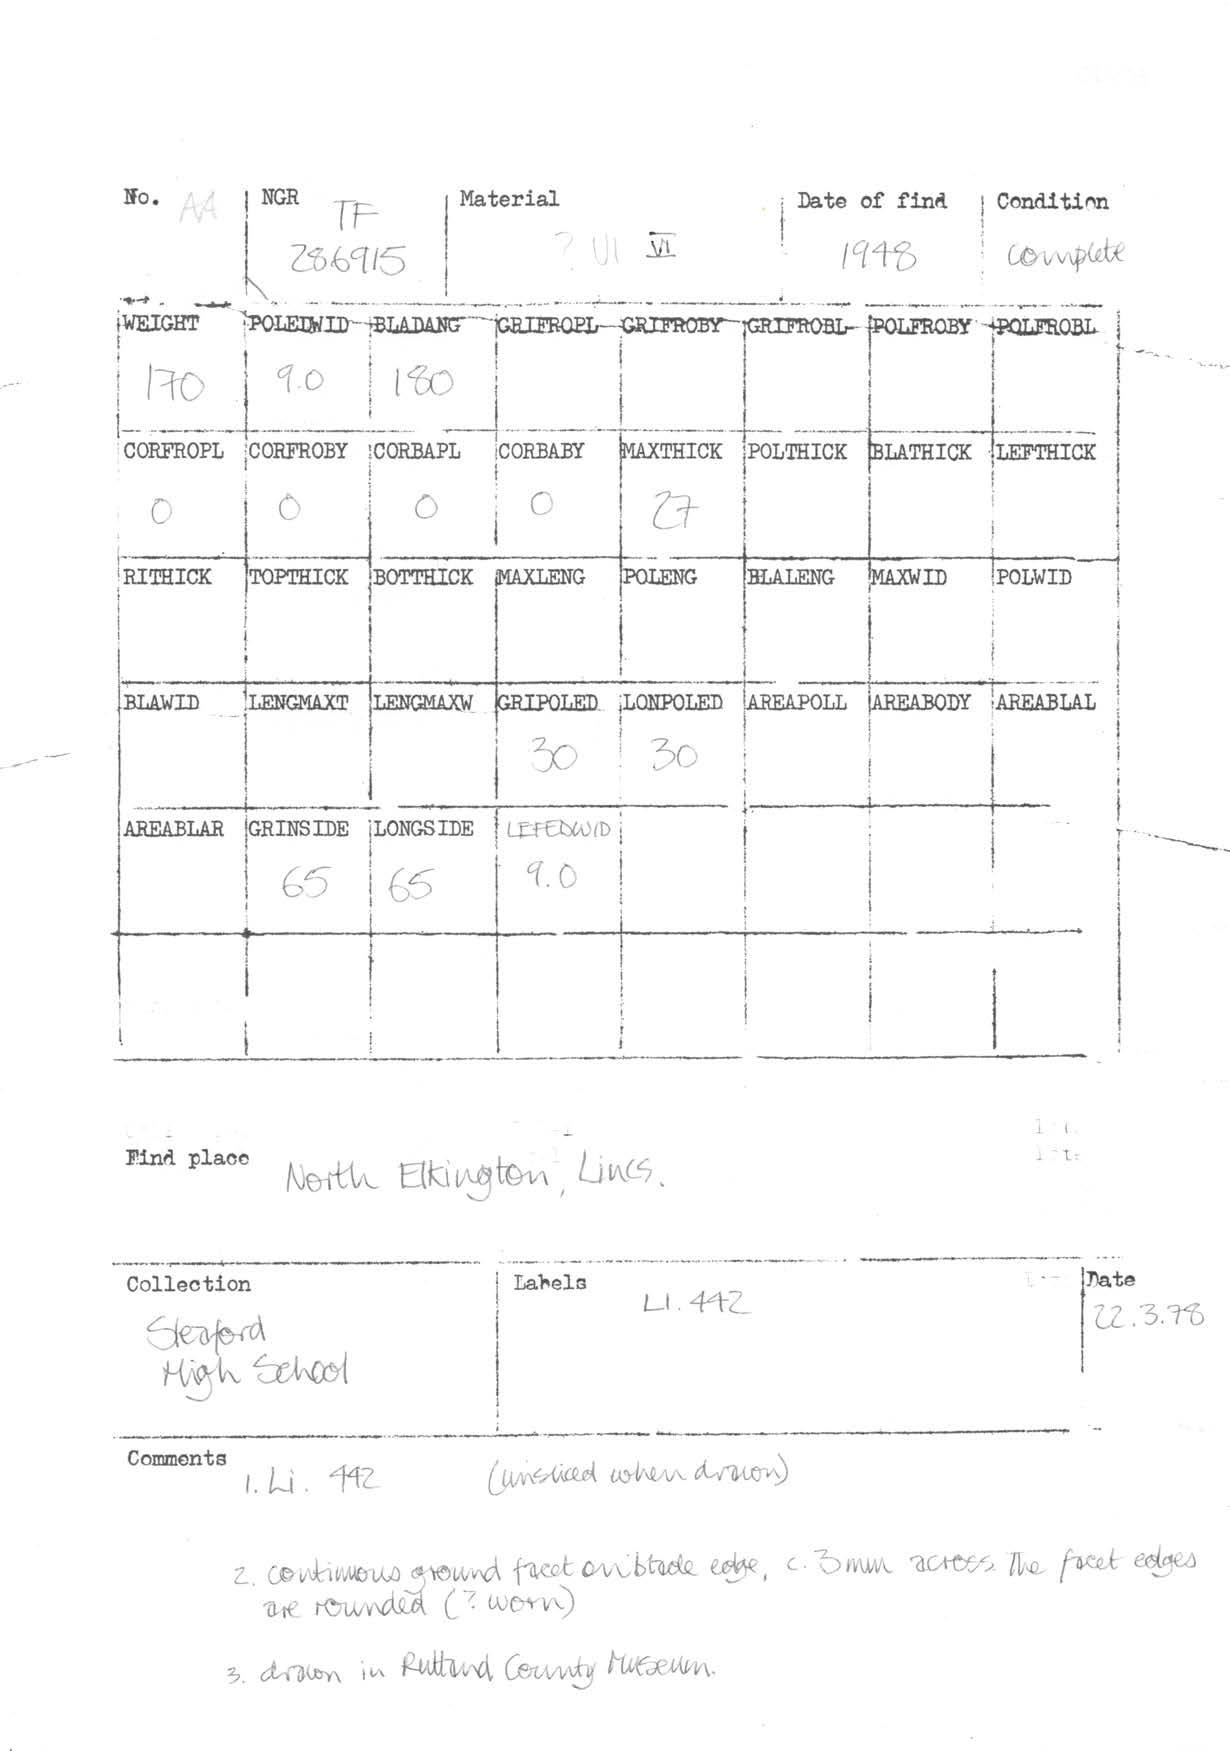 No. AA NGR TF Material Date of find Condition
286915 ? VI VI 1948 complete
WEIGHT POLEDWID BLADANG GRIFROPL GRIFROBY GRIFROBL POLFROBY POLFROBL
170 9.0 180
CORFROPL CORFROBY CORBAPL CORBABY MAXTHICK POLTHICK BLATHICK LEFTHICK
0 0 0 0 27
RITHICK TOPTHICK BOTTHICK MAXLENG POLENG BLALENG MAXWID POLWID
BLAWID LENGMAXT LENGMAXW GRIPOLED LONPOLED AREAPOLL AREABODY AREABLAL
30 30
AREABLAR GRINSIDE LONGSIDE LEFEDWID
65 65 9.0
Find place North Elkington, Lincs.
Collection Labels Date
LI. 442 22.3.78
Sleaford
High School
Comments
1. Li. 442 (unsliced when drawn)
2. continuous ground facet on blade edge, c. 3mm across. The facet edges
are rounded (? worn)
3. drawn in Rutland County Museum.